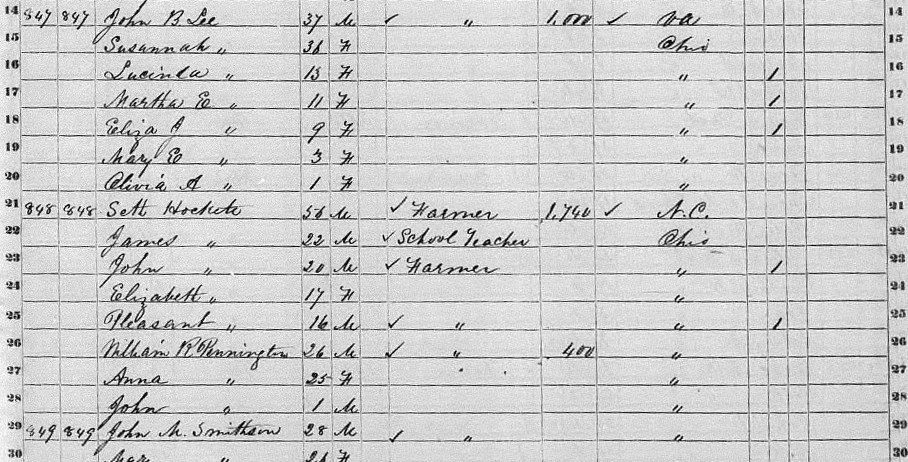 14 847 847 John B Lee 37 M ✓ " 1,000 ✓ Va 14
15 Susannah " 36 F Ohio 15
16 Lucinda " 13 F " 1 16
17 Martha E " 11 F " 1 17
18 Eliza J " 9 F " 1 18
19 Mary E " 3 F " 19
20 Olivia A " 1 F " 20
21 848 848 Seth Hockett 56 M ✓ Farmer 1,740 ✓ N.C. 21
22 James " 22 M ✓ School Teacher Ohio 22
23 John " 20 M ✓ Farmer " 1 23
24 Elizabeth " 17 F " 24
25 Pleasant " 16 M ✓ " " 1 25
26 William R. Pennington 26 M ✓ " 400 " 26
27 Anna " 25 F " 27
28 John " 1 M " 28
29 849 849 John M. Smithson 28 M ✓ " " 29
30 Mary " F 30